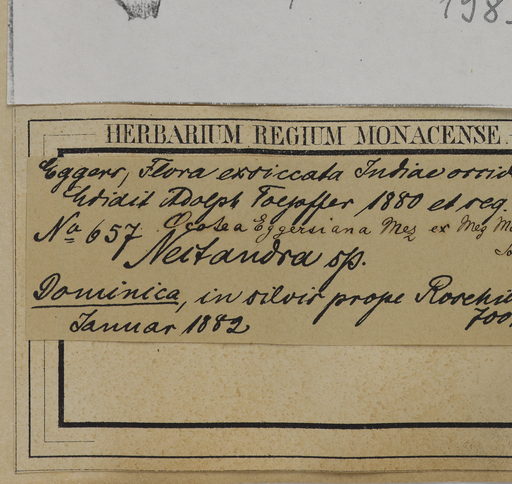 198
HERBARIUM REGIUM MONACENSE.
Eggers, Flora exsiccata Indiae occid
Edidit Adolph Toepffer 1880 et seq.
No 657. Ocotea Eggersiana Mez ex Mez
Nectandra sp.
Dominica, in silvis prope
700
Januar 1882